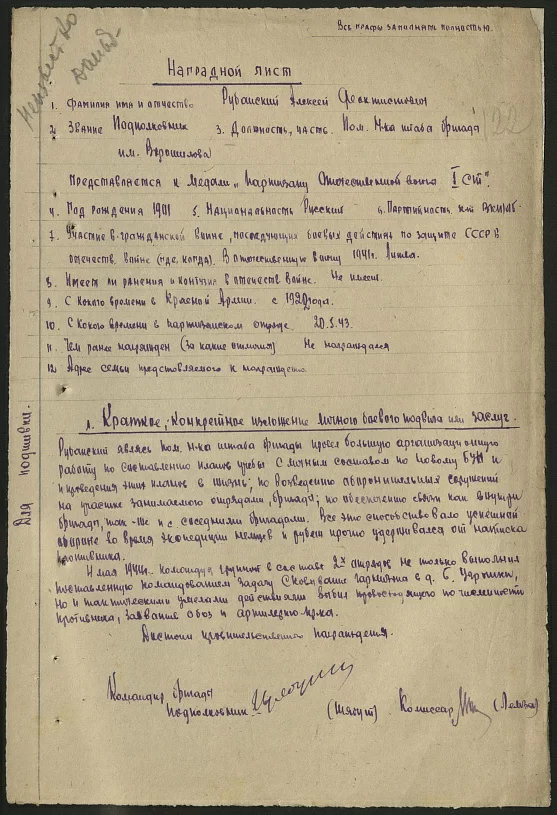 Все графы заполнять полностью.
122
Наградной лист
1. Фамилия имя и отчество Рубанский Алексей Феоктистович
2. Звание Подполковник 3. Должность, часть. Пом. Н-ка штаба бригады
им. Ворошилова
Представляется к медали „Партизану Отечественной войны I ст".
4. Год рождения 1901 5. Национальность Русский 6. Партийность
7. Участие в гражданской войне, последующих боевых действиях по защите СССР в
отечеств. войне (где, когда). В отечественную войну 1941г.
8. Имеет ли ранения и контузии в отечеств войне. Не имеет.
9. С какого времени в Красной Армии. с 1920 года.
10. С какого времени в партизанском отряде. 20.5.43.
11. Чем ранее награжден (за какие отличия) Не награждался
12. Адрес семьи представляемого к награждению
Для подшивки.
1. Краткое, конкретное изложение личного боевого подвига или заслуг.
Рубанский являясь пом. н-ка штаба бригады провел большую организационную
работу по составлению планов учебы с личным составом по новому БУП и
и проведения этих планов в жизнь; по возведению оборонительных сооружений
на участке занимаемого отрядами, бригады; по обеспечению связи как внутри
бригады, так-же и с соседними бригадами. Все это способствовало успешной
обороне во время экспедиции немцев и рубеж прочно удерживался от натиска
противника.
мая 1944г. командуя группой в составе 2х отрядов не только выполнил
поставленную командованием задачу сковывание гарнизона в д.
но и тактическими умелыми действиями выбил превосходящего по численности
противника, захватив обоз и
Достоин правительственной награждения.
Командир бригады
подполковник
Комиссар